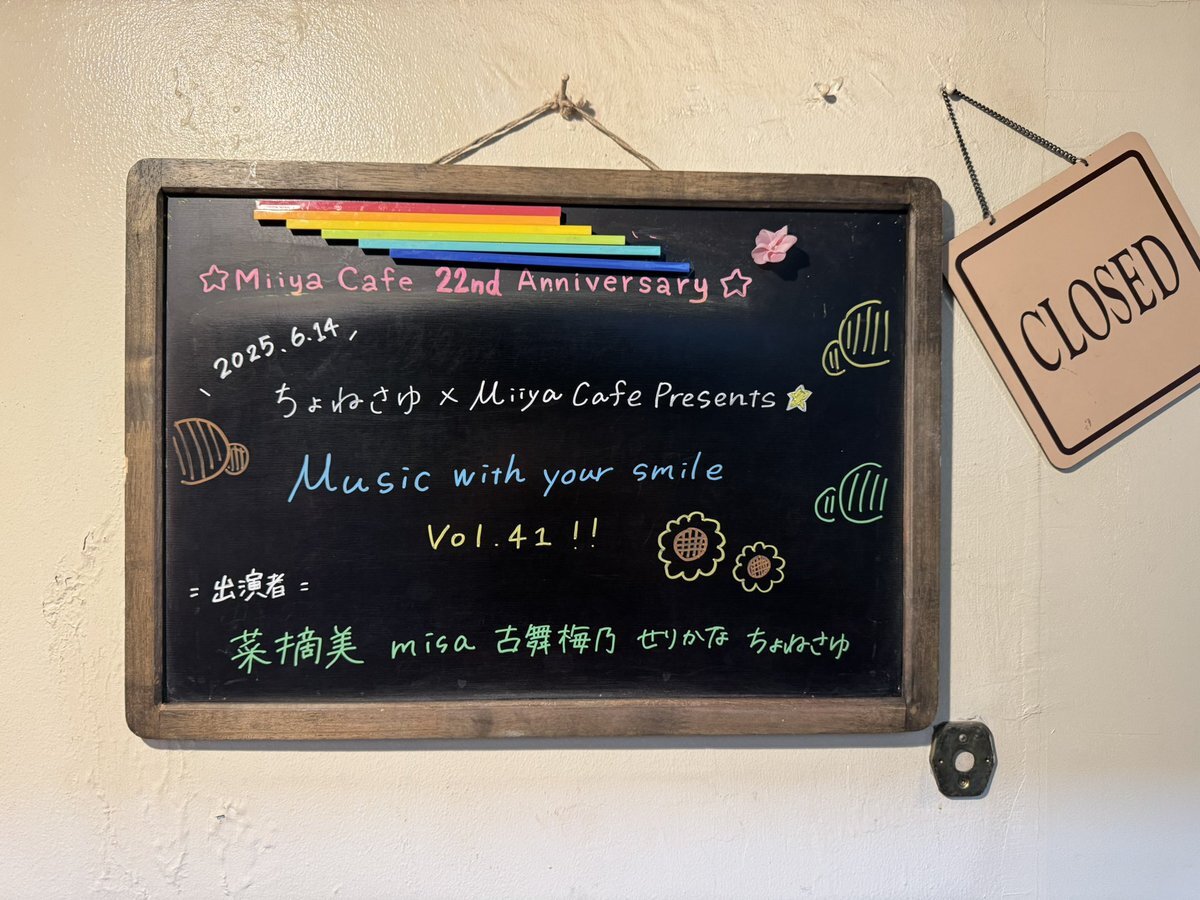 ☆Miiya Cafe 22nd Anniversary☆
2025.6.14
ちょねさゆ × Miiya Cafe Presents
Music with your smile
Vol.41!!
=出演者=
菜摘美 misa 古舞梅乃 せりかな ちょねさゆ
CLOSED